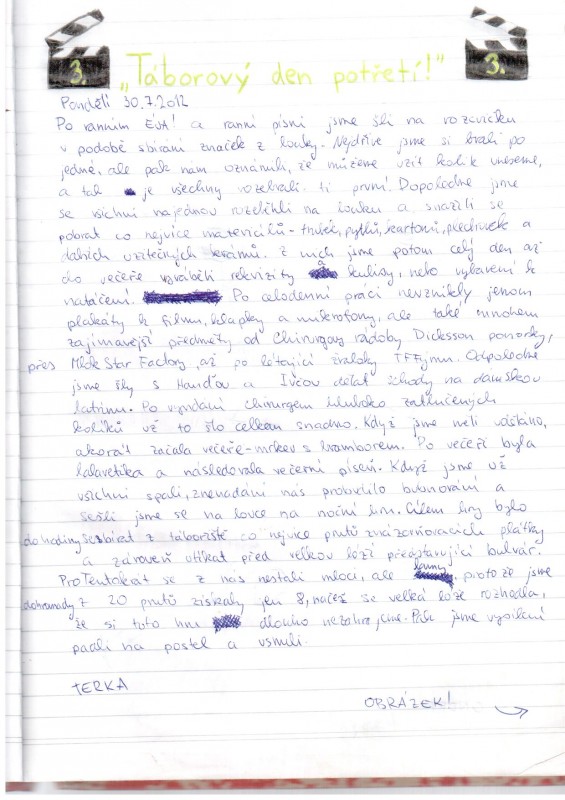 3.
„Táborový den potřetí!"
3.
Pondělí 30.7.2012
Po ranním a ranní písni jsme šli na rozcvičku
v podobě sbírání značek z louky. Nejdříve jsme si brali po
jedné, ale pak nám oznámili, že můžeme vzít kolik uneseme,
a tak je všechny rozebrali ti první. Dopoledne jsme
se všichni najednou rozeběhli na louku a snažili se
pobrat co nejvíce - pytlů, kartonů, plechovek a
dalších užitečných krámů. Z nich jsme potom celý den až
do večeře vyráběli rekvizity kulisy, nebo vybavení k
natáčení. Po celodenní práci nevznikly jenom
plakáty k filmu, klapky a mikrofony, ale také mnohem
zajímavější předměty od Chirurgovy ponorky,
přes Star Factory, až po létající Odpoledne
jsme šly s Hanďou a dělat schody na dámskou
latrínu. Po vyndání chirurgem hluboko zatlučených
kolíků už to šlo celkem snadno. Když jsme měli
akorát začala večeře - mrkev s bramborem. Po večeři byla
a následovala večerní píseň. Když jsme už
všichni spali, znenadání nás probudilo bubnování a
sešli jsme se na louce na noční hru. Cílem hry bylo
do hodiny sesbírat z tábořiště co nejvíce prutů znázorňovacích plátky
a zároveň utíkat před velkou lóží představující bulvár.
Pro Tentokrát se z nás nestali vloci, ale lamy, protože jsme
dohromady z 20 prutů získaly jen 8, načež se velká lóže rozhodla,
že si tuto hru dlouho nezahrajeme. Pak jsme vysíleni
padli na postel a usnuli.
TERKA
OBRÁZEK!